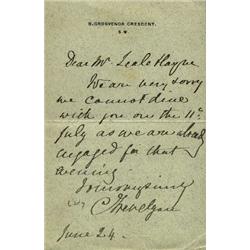 8, GROSVENOR CRESCENT.
S.W.
Dear Mr Seale Hayne
We are very sorry
we cannot dine
with you on the 11th
July as we are already
engaged for that
evening
Yours very truly
C Trevelyan
June 24.